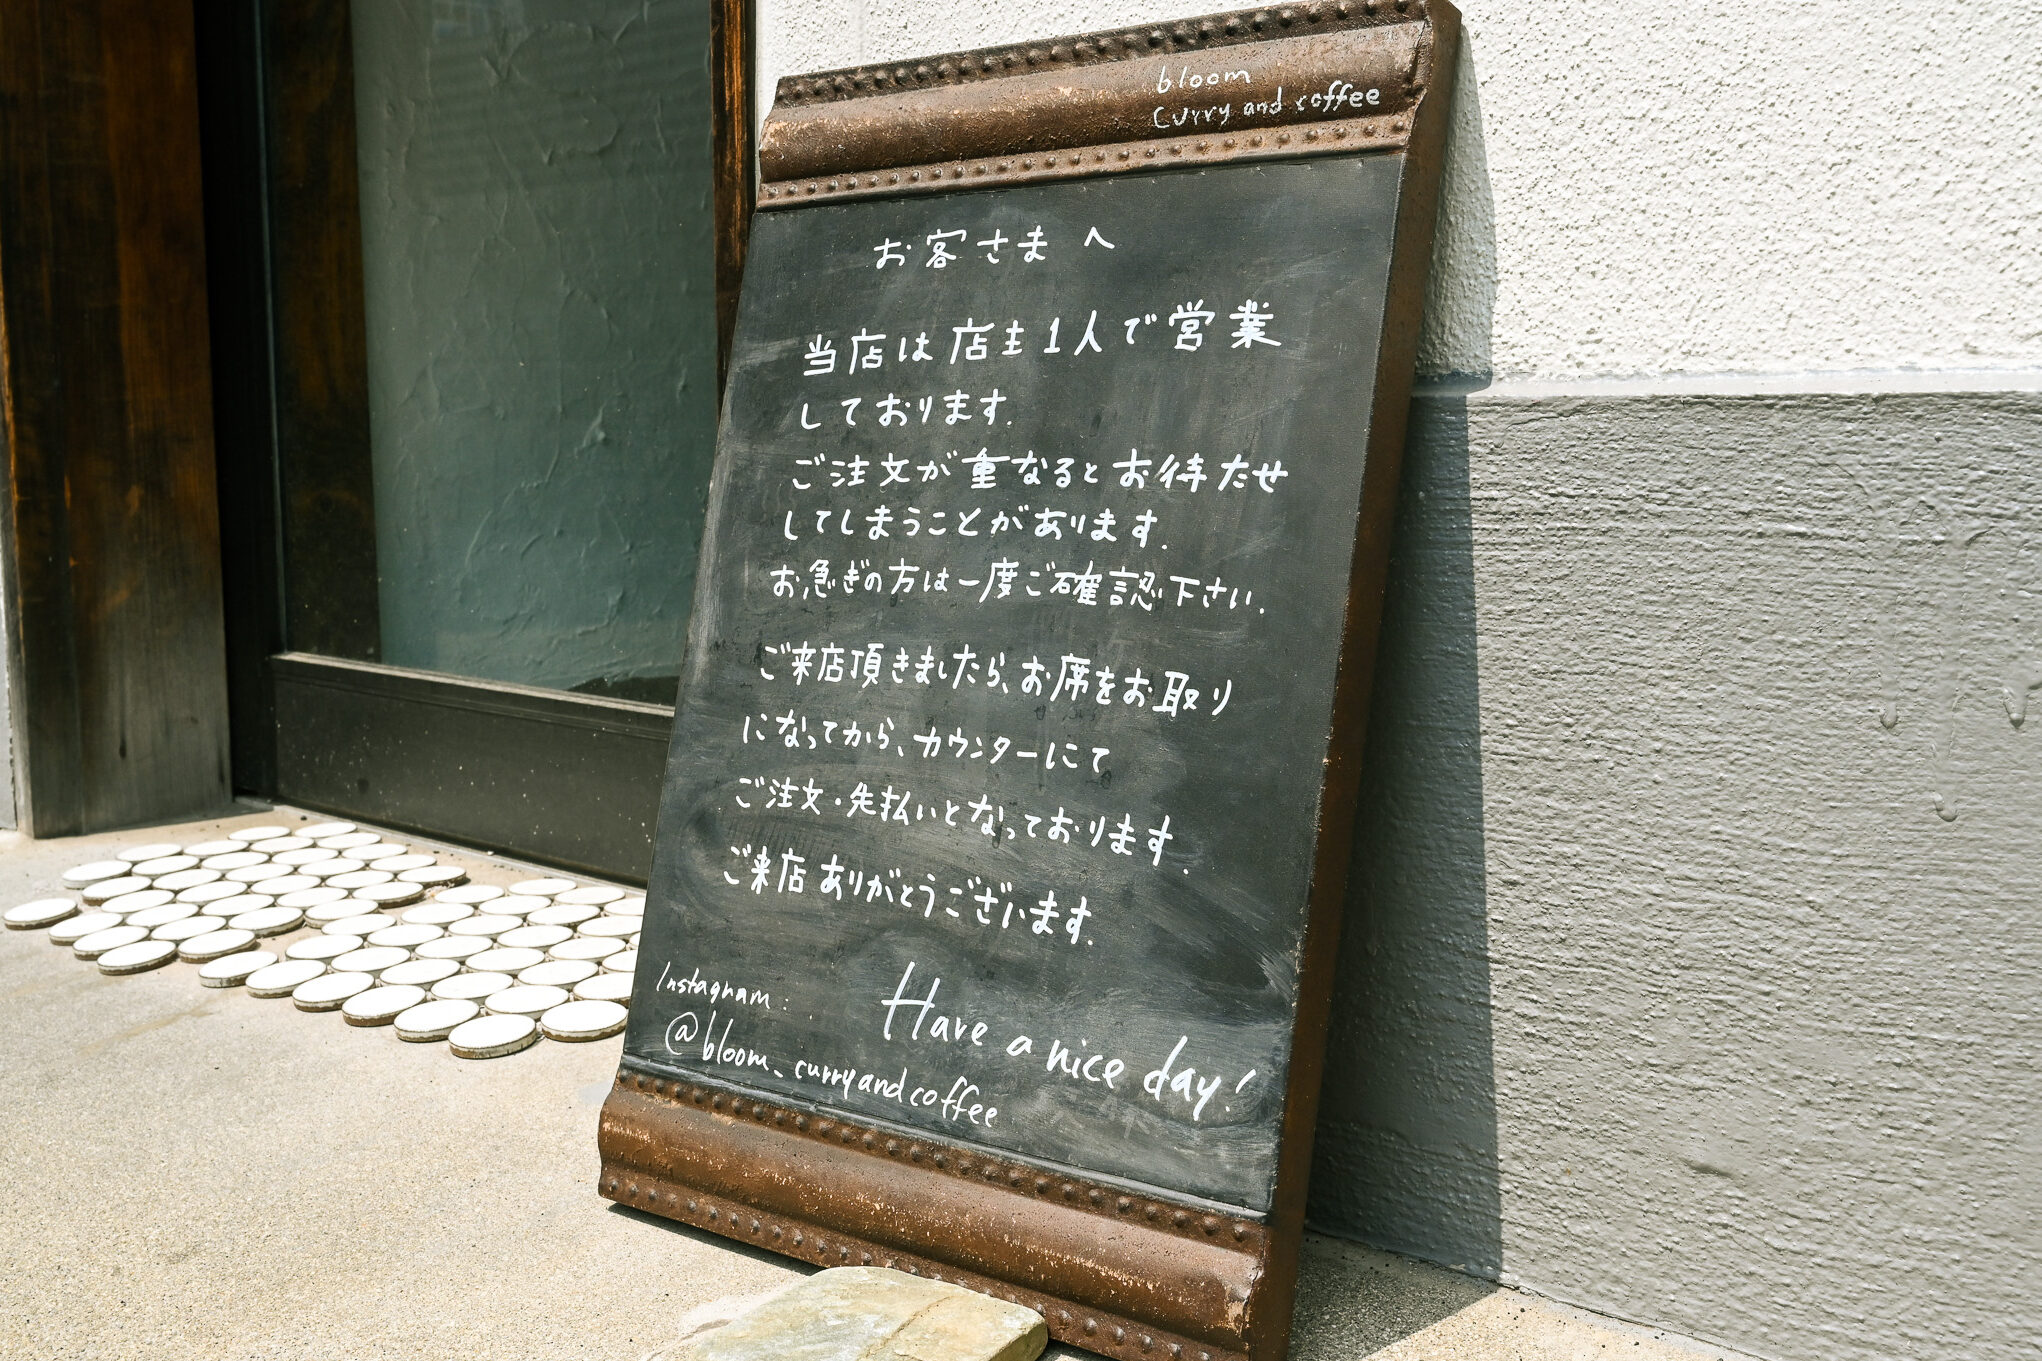 bloom
curry and coffee
お客さまへ
当店は店主1人で営業
しております.
ご注文が重なるとお待たせ
してしまうことがあります.
お急ぎの方は一度ご確認下さい.
ご来店頂きましたら、お席をお取り
になってから、カウンターにて
ご注文・先払いとなっております.
ご来店ありがとうございます.
Have a nice day!
Instagram:
@bloom_curryandcoffee